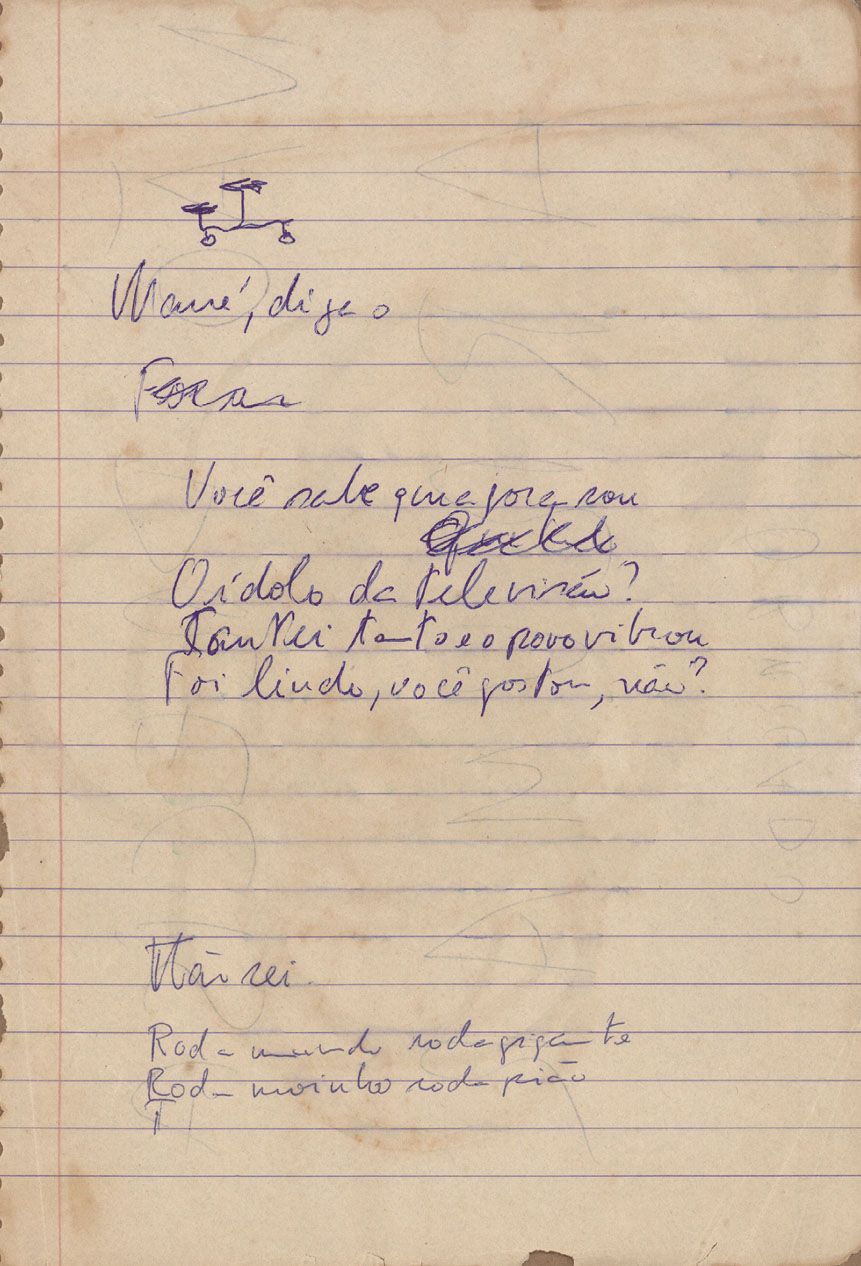 Mané, diga o
Você sabe que agora sou
O ídolo da televisão?
Cantei tanto e o povo vibrou
Foi lindo, você gostou, não?
Não sei
Roda mundo roda gigante
Roda moinho roda pião
T